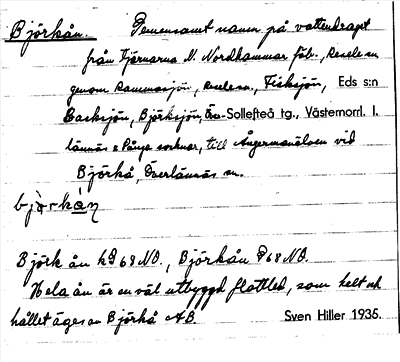 Björkån. Gemensamt namn på vattendraget
från Tjärnarna N. Nordhammar fåb., Resele sn
genom Rammsjön, Resele sn, Fisksjön, Eds s:n
Backsjön, Björksjön, Sollefteå tg., Västernorrl. l.
lännäs & Långs. socknar, till Ångermanälven vid
Björkå, Överlännäs sn.
bjòrkàn
Björk ån kD 68 NO., Björkån 68 NO.
Hela ån är en väl utbyggd flottled, som helt och
hållet äges av Björkå AB. Sven Hiller 1935.